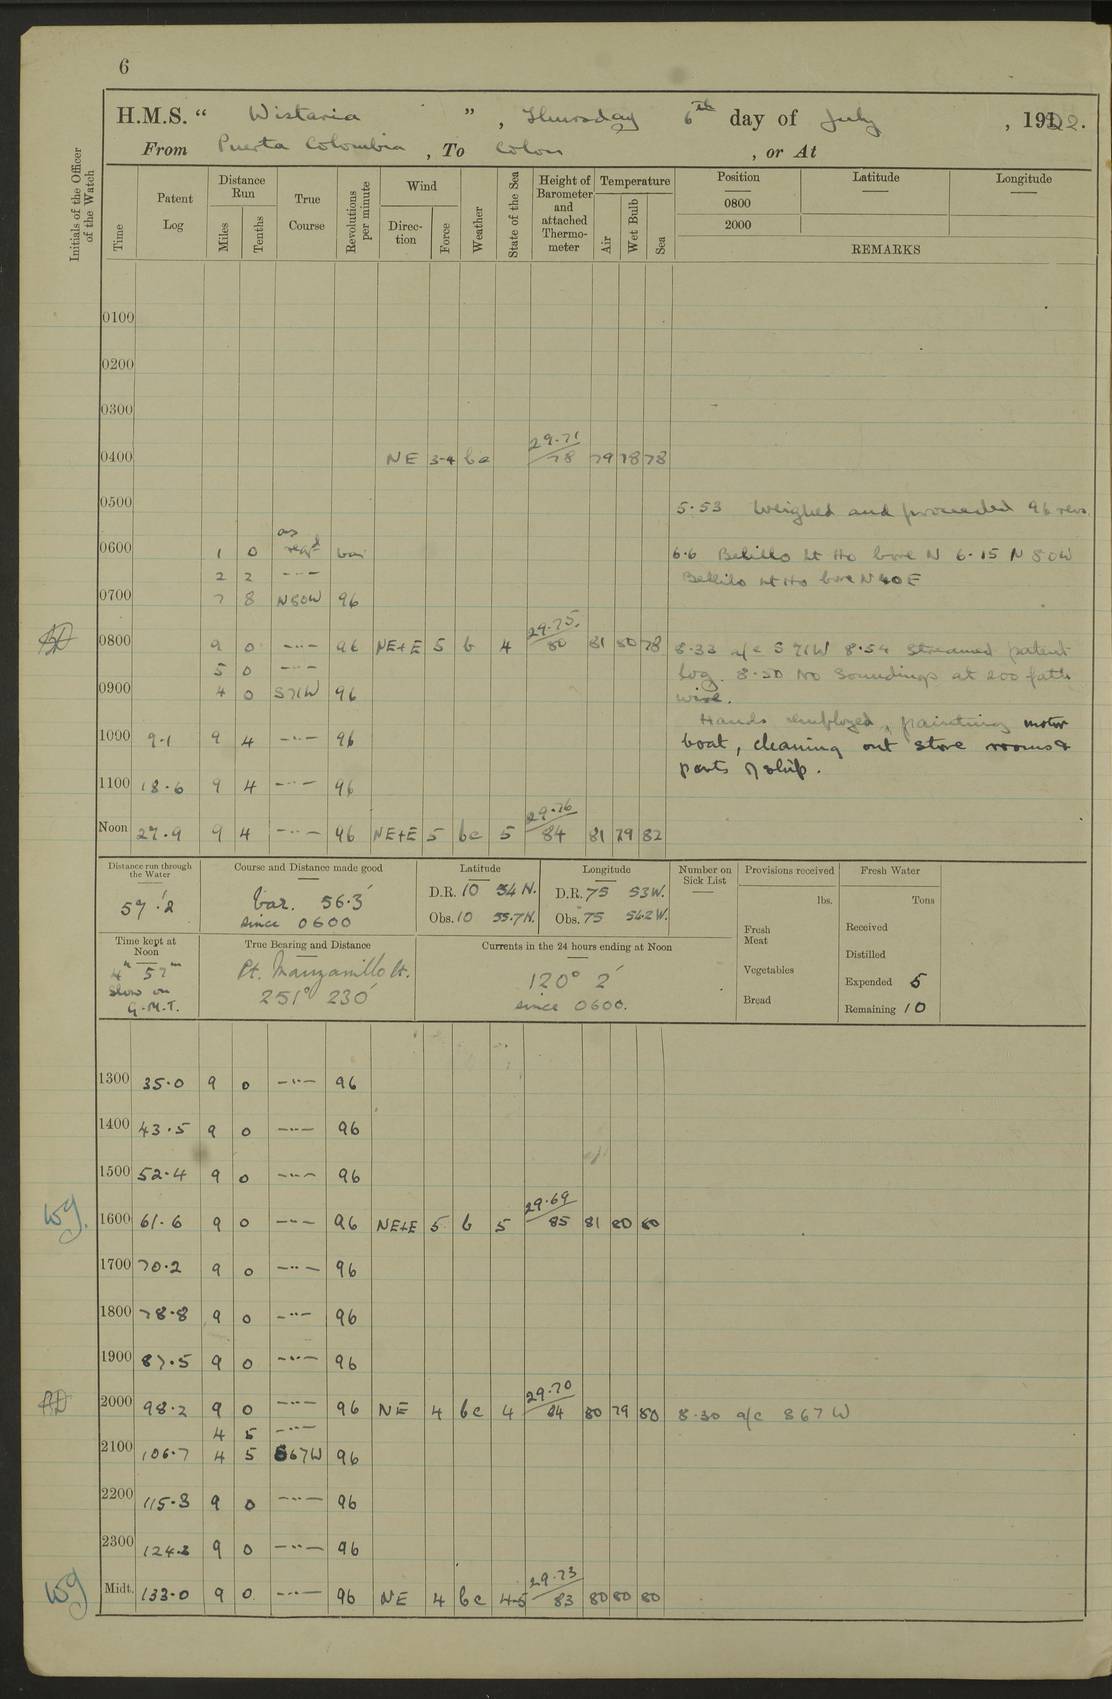 6
H.M.S. “ Wistaria ” , Thursday 6th day of July , 1922.
From Puerta Colombia , To Colon , or At
Initials of the Officer of the Watch
Time
Patent Log
Distance Run
Miles
Tenths
True Course
Revolutions per minute
Wind
Direc-tion
Force
Weather
State of the Sea
Height of Barometer and attached Thermo-meter
Temperature
Air
Wet Bulb
Sea
Position Latitude Longitude
0800
2000
REMARKS
0100
0200
0300
0400 NE 3-4 bc 29.71/78 79 78 78
0500
5.53 Weighed and proceeded 96 revs.
0600 1 0 as reqd var 6.6 Belillo Lt Ho bore N 6.15 N 80W
2 2 -..- Belillo Lt Ho bore N 40 E
0700 7 8 N80W 96
0800 9 0 -..- 96 NE+E 5 b 4 29.75/80 81 80 78 8.33 a/c S 71W 8.54 Streamed patent
5 0 -..- log. 8.50 No Soundings at 200 faths
0900 4 0 S71W 96 wire.
Hands employed, painting motor
1000 9.1 9 4 -..- 96 boat, cleaning out store rooms &
parts of ship.
1100 18.6 9 4 -..- 96
Noon 27.9 9 4 -..- 96 NE+E 5 bc 5 29.76/84 81 79 82
Distance run through the Water
57.'2
Course and Distance made good
Var. 56.3'
since 0600
Latitude
D.R. 10 54 N.
Obs. 10 55.7 N.
Longitude
D.R. 75 53 W.
Obs. 75 56.2 W.
Number on Sick List
Provisions received
lbs.
Fresh Meat
Vegetables
Bread
Fresh Water
Tons
Received
Distilled
Expended 5
Remaining 10
Time kept at Noon
4h 57m
Slow on
G.M.T.
True Bearing and Distance
Pt. Manzanillo lt.
251° 230'
Currents in the 24 hours ending at Noon
120° 2'
since 0600.
1300 35.0 9 0 -..- 96
1400 43.5 9 0 -..- 96
1500 52.4 9 0 -..- 96
WG. 1600 61.6 9 0 -..- 96 NE+E 5 b 5 29.69/85 81 80 80
1700 70.2 9 0 -..- 96
1800 78.8 9 0 -..- 96
1900 87.5 9 0 -..- 96
2000 98.2 9 0 -..- 96 NE 4 bc 4 29.70/84 80 79 80 8.30 a/c S67W
4 5 -..-
2100 106.7 4 5 S67W 96
2200 115.3 9 0 -..- 96
2300 124.3 9 0 -..- 96
WG Midt. 133.0 9 0 -..- 96 NE 4 bc 4-5 29.73/83 80 80 80